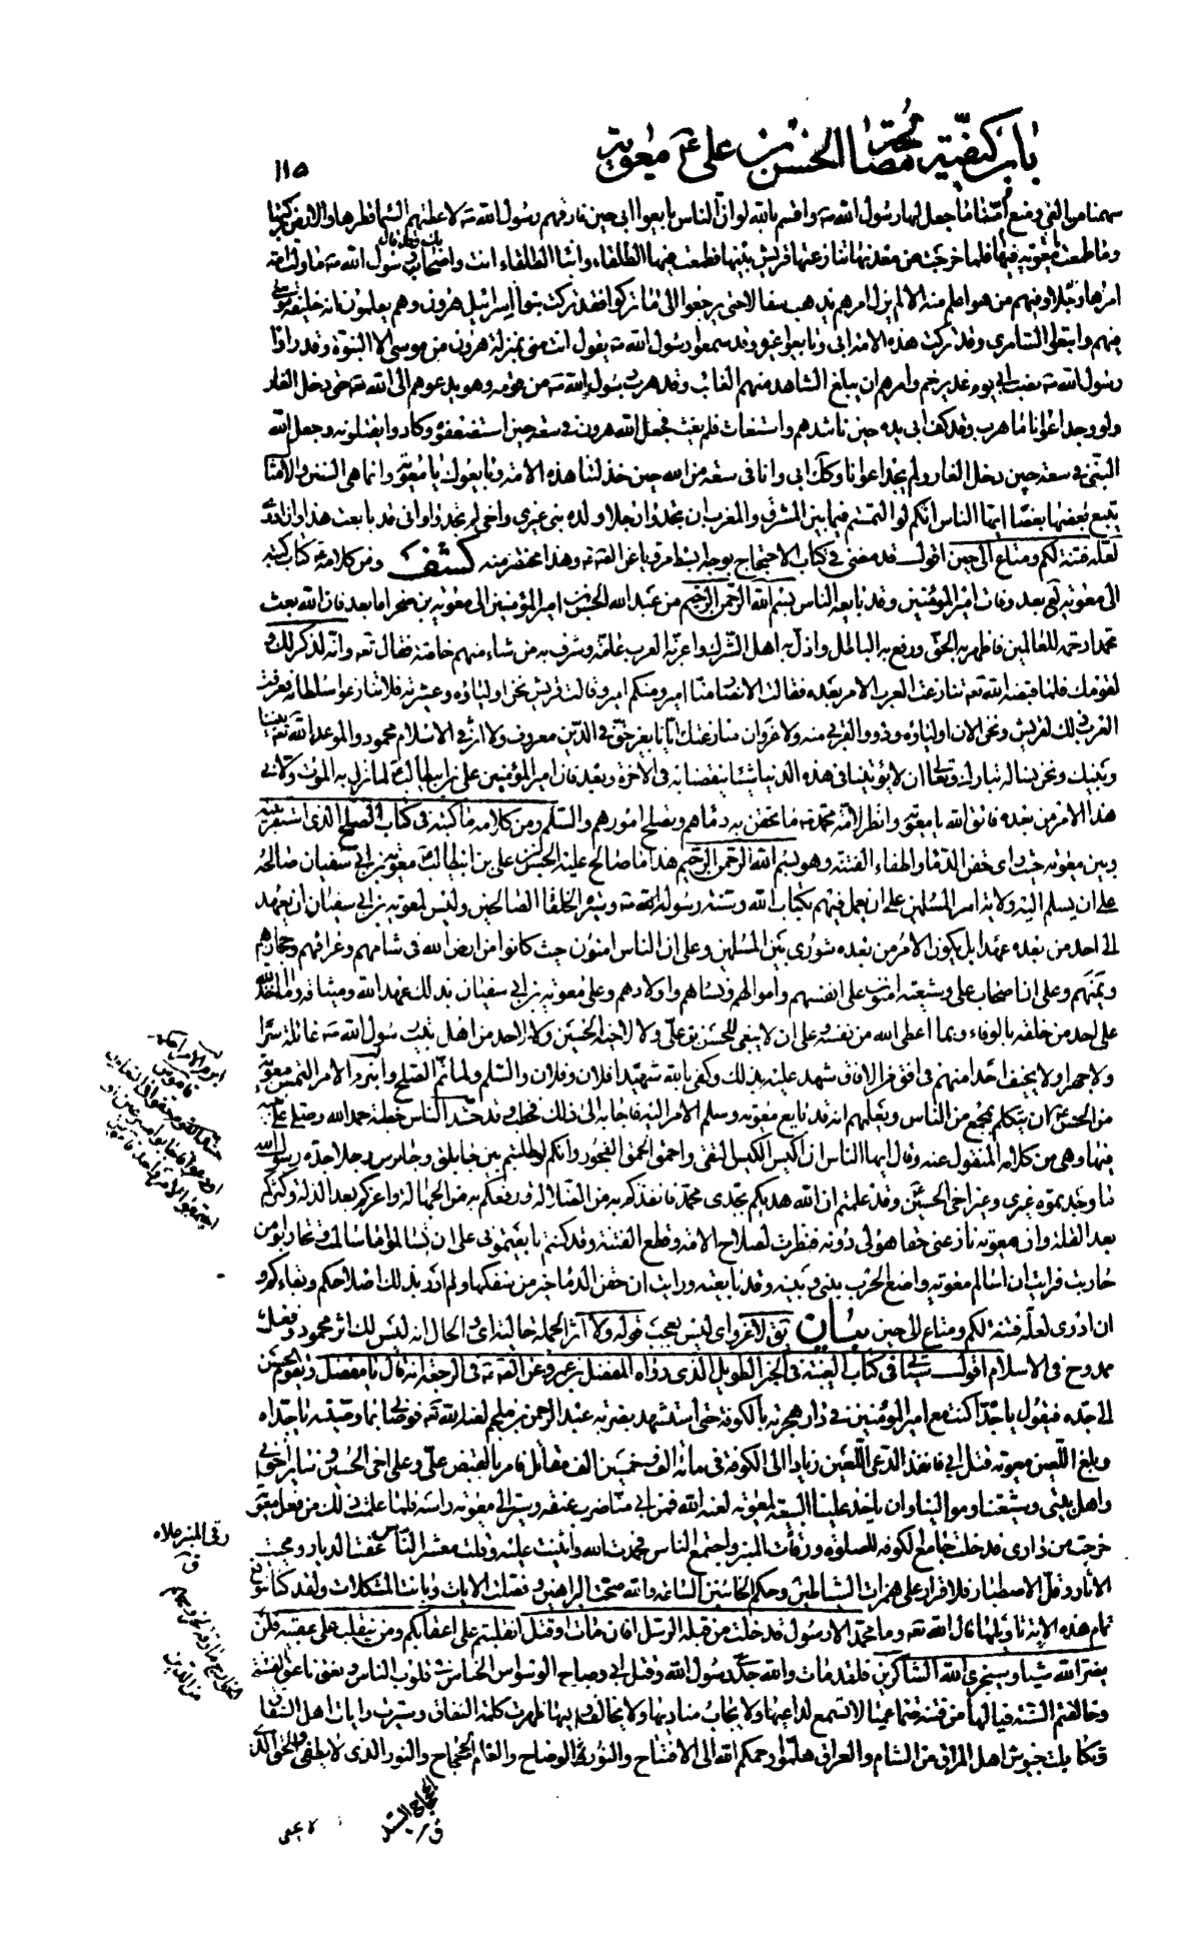 باب كيفية مصالحة الحسن بن علي ع معوية
١١٥
سهمنا من الفي ومنع امنا ما جعل لها رسول الله ص واقسم بالله لو ان الناس بايعوا ابى حين فارقهم رسول الله ص لاعطتهم السماء قطرها والارض بركتها
وما طمعت فيها يا معوية فلما خرجت من معدنها تنازعتها قريش بينها فطمعت فيها الطلقاء وابناء الطلقاء انت واصحابك وقد قال رسول الله ص ما ولت امة
امرها رجلا وفيهم من هو اعلم منه الا لم يزل امرهم يذهب سفالا حتى يرجعوا الى ما تركوا فقد تركت بنو اسرائيل هرون وهم يعلمون انه خليفة موسى
فيهم واتبعوا السامرى وقد تركت هذه الامة ابى وبايعوا غيره وقد سمعوا رسول الله ص يقول انت منى بمنزلة هرون من موسى الا النبوة وقد راوا
رسول الله ص نصب ابى يوم غدير خم وامرهم ان يبلغ الشاهد منهم الغائب وقد هرب رسول الله ص من قومه وهو يدعوهم الى الله حتى دخل الغار
ولو وجد اعوانا ما هرب وقد كف ابى يده حين ناشدهم واستغاث فلم يغث فجعل الله هرون فى سعة حين استضعفوه وكادوا يقتلونه وجعل الله
النبى فى سعة حين دخل الغار ولم يجد اعوانا وكذلك ابى وانا فى سعة من الله حين خذلتنا هذه الامة وبايعوك يا معوية وانما هى السنن والامثال
يتبع بعضها بعضا ايها الناس انكم لو التمستم فيما بين المشرق والمغرب ان تجدوا رجلا ولده بنى غيرى واخى لم تجدوا وانى قد بايعت هذا وان ادرى
لعله فتنة لكم ومتاع الى حين اقول قد مضى فى كتاب الاحتجاج بوجه ابسط مرويا عن الصادق ع وهذا مختصر منه كشف ومن كلامه ع كتاب كتبه
الى معوية بعد وفات امير المؤمنين وقد بايعه الناس بسم الله الرحمن الرحيم من عبد الله الحسن امير المؤمنين الى معوية بن صخر اما بعد فان الله بعث
محمدا رحمة للعالمين فاظهر به الحق ورفع به الباطل واذل به اهل الشرك واعز به العرب عامة وشرف به من شاء منهم خاصة فقال تعالى وانه لذكر لك و
لقومك فلما قبضه الله تعالى تنازعت العرب الامر بعده فقالت الانصار منا امير ومنكم امير وقالت قريش نحن اولياؤه وعشيرته فلا تنازعوا سلطانه فعرفت
العرب ذلك لقريش ونحن الان اولياؤه وذوو القربى منه ولا غرو ان منازعتك ايانا بغير حق فى الدين معروف ولا اثر فى الاسلام محمود والموعد الله تعالى بيننا
وبينك ونحن نساله تبارك وتعالى ان لا يؤتينا فى هذه الدنيا شيئا ينقصنا به فى الاخرة وبعد فان امير المؤمنين على بن ابيطالب لما نزل به الموت ولانى
هذا الامر من بعده فاتق الله يا معوية وانظر لامة محمد ص ما تحقن به دماءهم وتصلح امورهم والسلم ومن كلامه ما كتبه فى كتاب الصلح الذى استقر بينه
وبين معوية حيث راى حقن الدماء واطفاء الفتنة وهو بسم الله الرحمن الرحيم هذا ما صالح عليه الحسن بن على بن ابيطالب معوية بن ابى سفيان صالحه
على ان يسلم اليه ولاية امر المسلمين على ان يعمل فيهم بكتاب الله وسنة رسول الله ص وسيرة الخلفاء الصالحين وليس لمعوية بن ابى سفيان ان يعهد
الى احد من بعده عهدا بل يكون الامر من بعده شورى بين المسلمين وعلى ان الناس امنون حيث كانوا من ارض الله فى شامهم وعراقهم وحجازهم
ويمنهم وعلى ان اصحاب على وشيعته امنون على انفسهم واموالهم ونسائهم واولادهم وعلى معوية بن ابى سفيان بذلك عهد الله وميثاقه وما اخذ الله
على احد من خلقه بالوفاء وبما اعطى الله من نفسه وعلى ان لا يبغى للحسن بن على ولا لاخيه الحسين ولا لاحد من اهل بيت رسول الله ص غائلة سرا
ولا جهرا ولا يخيف احدا منهم فى افق من الافاق شهد عليه بذلك وكفى بالله شهيدا فلان وفلان والسلم ولما تم الصلح وانبرم الامر التمس معوية
من الحسن ع ان يتكلم بمجمع من الناس ويعلمهم انه قد بايع معوية وسلم الامر اليه فاجابه الى ذلك فخطب وقد حشد الناس خطبة حمد الله وصلى على نبيه
فيها وهى من كلامه المنقول عنه وقال ايها الناس ان اكيس الكيس التقى واحمق الحمق الفجور وانكم لو طلبتم بين جابلق وجابرس رجلا جده رسول الله
ما وجدتموه غيرى وغير اخى الحسين وقد علمتم ان الله هديكم بجدى محمد فانقذكم به من الضلالة ورفعكم به من الجهالة واعزكم بعد الذلة وكثركم
بعد القلة وان معوية نازعنى حقا هو لى دونه فنظرت لصلاح الامة وقطع الفتنة وقد كنتم بايعتمونى على ان تسالموا من سالمت وتحاربوا من
حاربت فرايت ان اسالم معوية واضع الحرب بينى وبينه وقد بايعته ورايت ان حقن الدماء خير من سفكها ولم ارد بذلك الا صلاحكم وبقاءكم و
ان ادرى لعله فتنة لكم ومتاع الى حين بيان يق لا غرو اى ليس بعجب قوله ولا اثر الجملة حالية اى والحال انه ليس لك اثر محمود وفعل
ممدوح فى الاسلام اقول سياتى فى كتاب الغيبة فى الخبر الطويل الذى رواه المفضل بن عمر عن الصادق ع فى الرجعة انه قال يا مفضل ويقوم الحسن
الى جده فيقول يا جداه كنت مع امير المؤمنين فى دار هجرته بالكوفة حتى استشهد بضربة عبد الرحمن بن ملجم لعنه الله فوصانى بما وصيته يا جداه
وبلغ اللعين معوية قتل ابى فانفذ الدعى اللعين زيادا الى الكوفة فى مائة الف وخمسين الف مقاتل فامر بالقبض على وعلى اخى الحسين وسائر اخوانى
واهل بيتى وشيعتنا وموالينا وان ياخذ علينا البيعة لمعوية لعنه الله فمن ابى منا ضرب عنقه وسير الى معوية راسه فلما علمت ذلك من فعل معوية
خرجت من دارى فدخلت جامع الكوفة للصلوة ورقأت المنبر واجتمع الناس فحمدت الله واثنيت عليه وقلت معشر الناس عفت الديار ومحيت
الاثار وقل الاصطبار فلا قرار على همزات الشياطين وحكم الخائنين الساعة والله صحت البراهين وفصلت الايات وبانت المشكلات ولقد كنا نتوقع
تمام هذه الاية تاويلها قال الله تعالى وما محمد الا رسول قد خلت من قبله الرسل افان مات او قتل انقلبتم على اعقابكم ومن ينقلب على عقبيه فلن
يضر الله شيئا وسيجزى الله الشاكرين فلقد مات والله جدى رسول الله وقتل ابى وصاح الوسواس الخناس فى قلوب الناس ونعق ناعق الفتنة
وخالفتم السنة فيا لها من فتنة صماء عمياء لا تسمع لداعيها ولا يجاب مناديها ولا يخالف واليها ظهرت كلمة النفاق وسيرت رايات اهل الشقاق
وتكالبت جيوش اهل المراق من الشام والعراق هلموا رحمكم الله الى الافتتاح والنور الوضاح والعلم الجحجاح والنور الذى لا يطفى والحق الذى
لا يخفى
رقى المنبر علاه
ق
الجحجاح السيد
ق